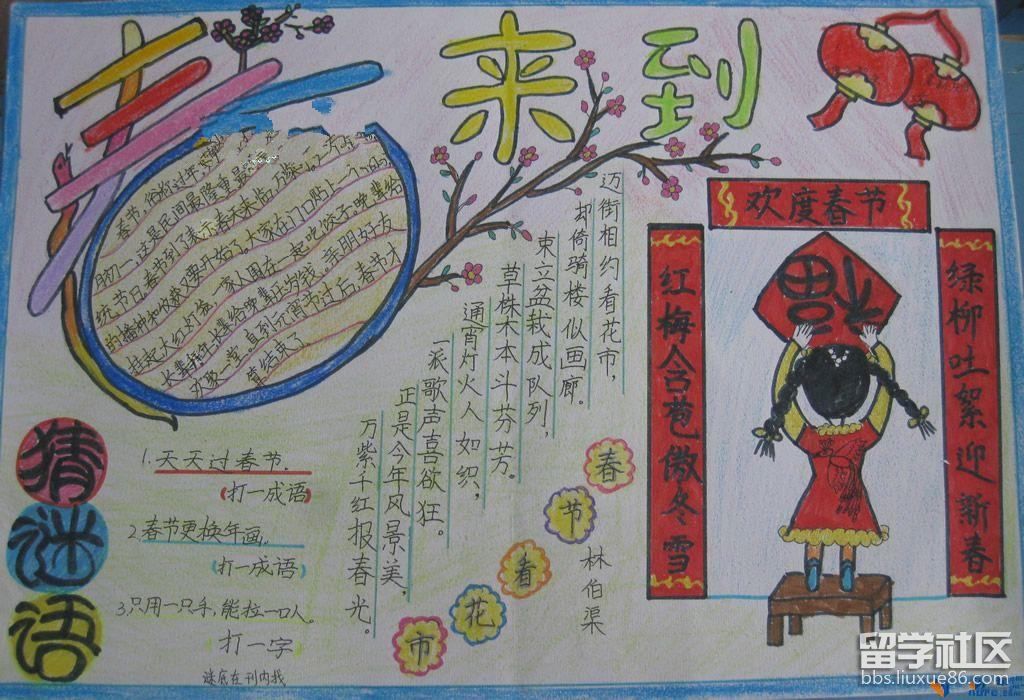 春来到
春节，俗称过年，
初一，这是民间最隆重最
统节日。春节到了表示春天来临，万象
的播种和收获又要开始了。大家在门口贴上
挂起大红灯笼，一家人围在一起吃饺子。晚辈给
长辈拜年，长辈给晚辈压岁钱。亲朋好友
欢聚一堂。直到元宵节过后，春节才
算结束了
迈街相约看花市，
却倚骑楼似画廊。
束立盆栽成队列，
草株木本斗芬芳。
通宵灯火人如织，
一派歌声喜欲狂。
正是今年风景美，
万紫千红报春光。
春节看花市
林伯渠
欢度春节
红梅含苞傲冬雪
绿柳吐絮迎新春
福
猜谜语
1.天天过春节.
(打一成语)
2.春节更换年画。
(打一成语)
3.只用一只手，能拉一口人。
打一字
谜底在刊内找
留学社区
bbs.liuxue86.com